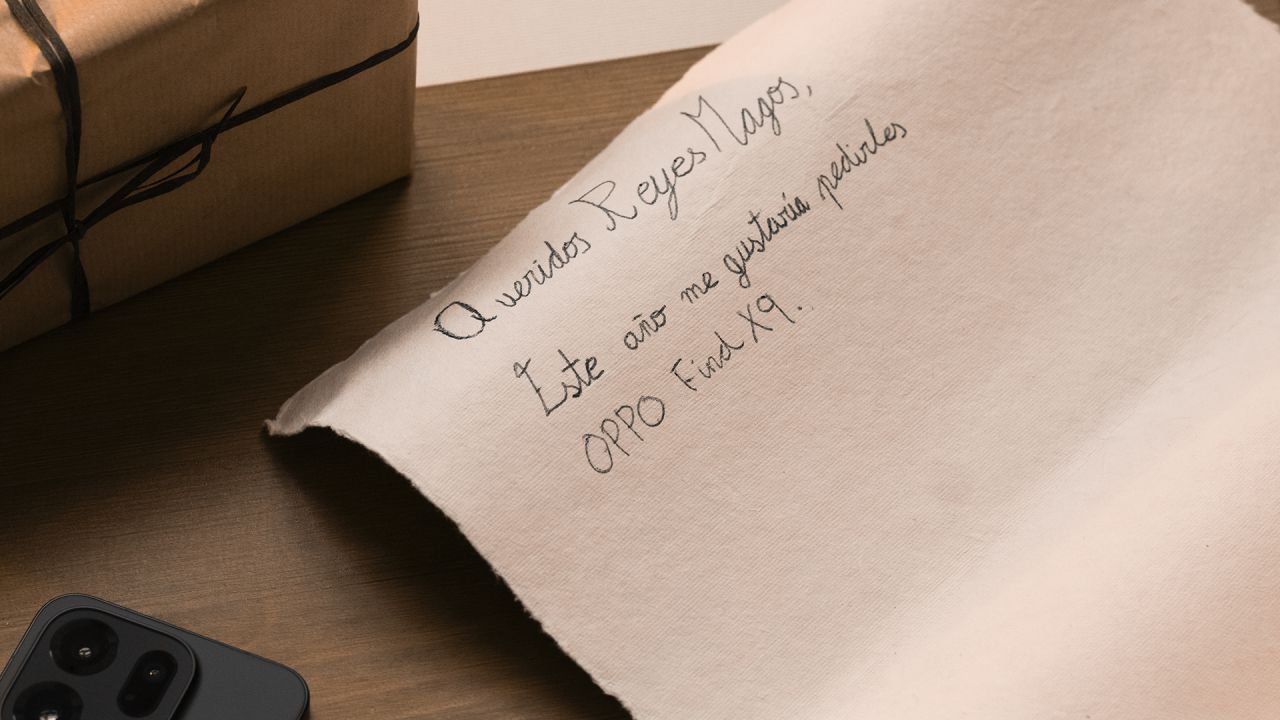 Queridos Reyes Magos,
Este año me gustaría pedirles
OPPO Find X9.